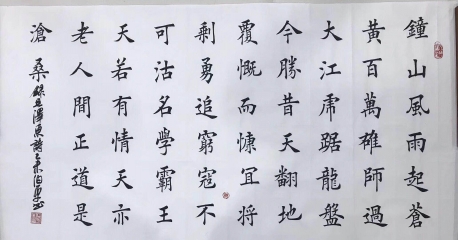 鐘山風雨起蒼
黃百萬雄師過
大江虎踞龍盤
今勝昔天翻地
覆慨而慷宜將
剩勇追窮寇不
可沽名學霸王
天若有情天亦
老人間正道是
滄桑 錄毛澤東詩